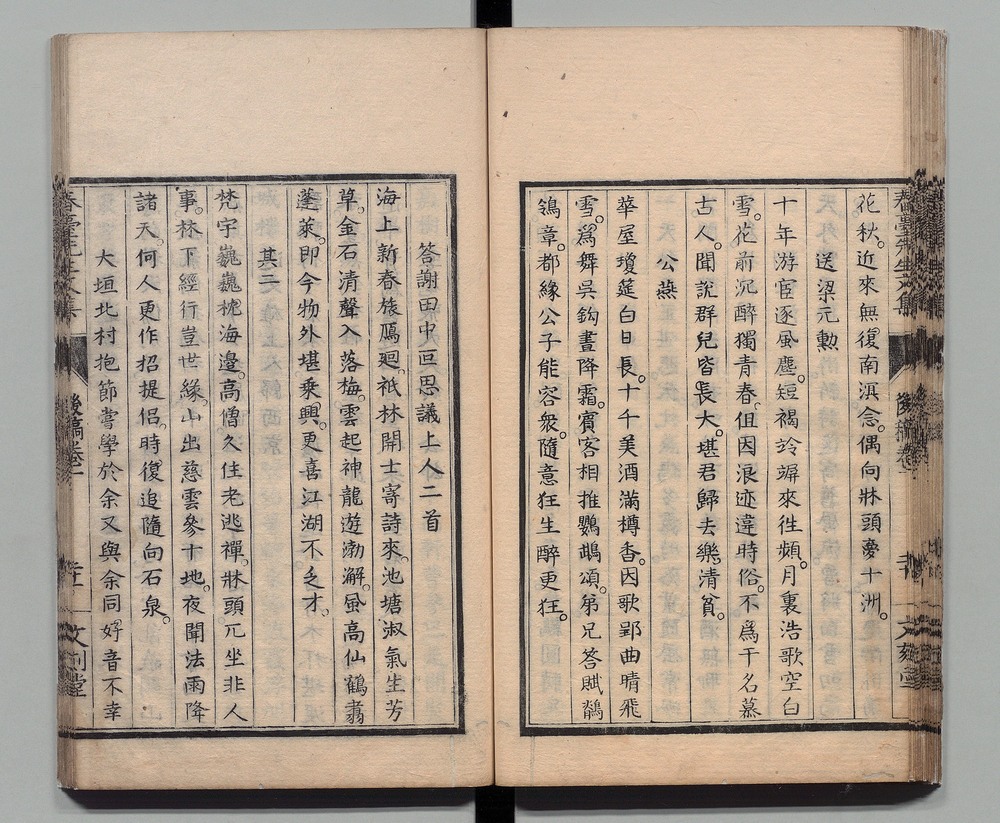 花秋。近來無復南溟念。偶向牀頭夢十洲。
送梁元勲
十年游宦逐風塵。短褐玲竮來徃頻。月裏浩歌空白
雪。花前沉醉獨青春。但因浪迹違時俗。不爲干名慕
古人。聞說群兒皆長大。堪君歸去樂清貧。
公燕
華屋瓊筵白日長。十千美酒滿樽香。因歌郢曲晴飛
雪。爲舞吳鈎晝降霜。賓客相推鸚鵡頌。弟兄答賦鶺
鴒章。都緣公子能容衆。隨意狂生醉更狂。
春臺先生文集
後稿卷一
文刻堂
答謝田中回思議上人二首
海上新春旅鴈廻。祇林開士寄詩來。池塘淑氣生芳
草。金石清聲入落梅。雲起神龍遊渤澥。風高仙鶴翥
蓬萊。即今物外堪乗興。更喜江湖不乏才。
其二
梵宇巍巍枕海邊。高僧久住老逃禪。牀頭兀坐非人
事。林下經行豈世緣。山出慈雲參十地。夜聞法雨降
諸天。何人更作招提侶。時復追隨向石泉。
大垣北村抱節嘗學於余又與余同好音不幸
春臺先生文集
後稿卷一
文刻堂